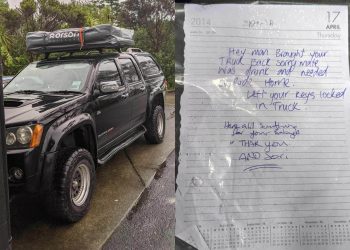 Rorson
2014
17
APRIL
Thursday
Hey man Brought your
Truck Back sorry mate
Was drunk and needed
Ride Home
Left your Keys locked
in Truck!
Heres all
for your
" THANK
YOU "
AND Sorri